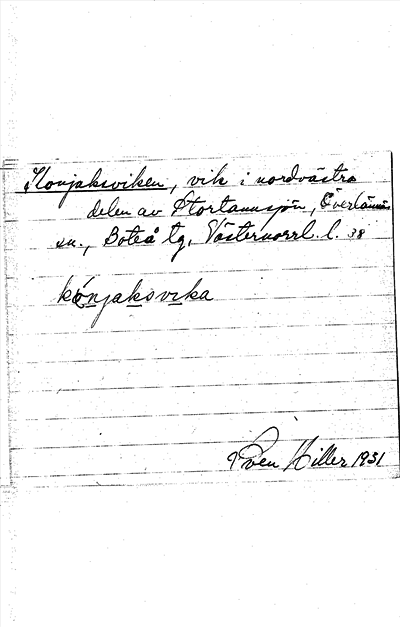 Konjaksviken, vik i nordvästra
delen av Stortannsjön, Överlännäs
sn., Boteå tg, Västernorrl. l. 38
kónjaksvika
Sven Hiller 1931